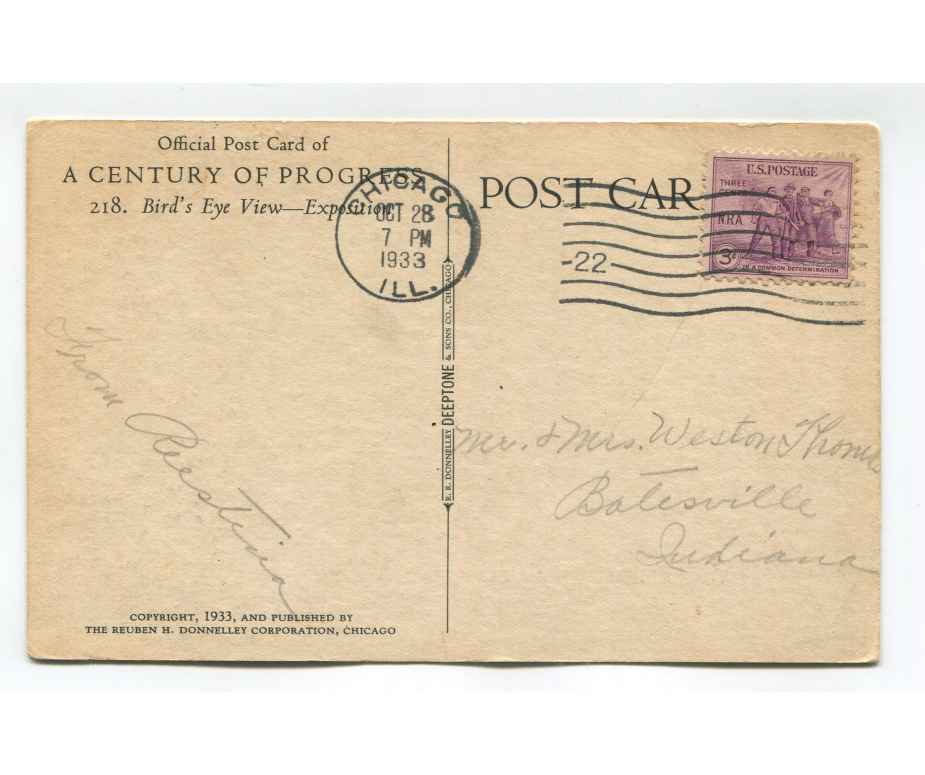 Official Post Card of
A CENTURY OF PROGRESS
218. Bird's Eye View—Exposition
CHICAGO
OCT 28
7 PM
1933
ILL.
POST CAR
-22-
U.S. POSTAGE
THREE
CENTS
N.R.A.
3¢
IN A COMMON DETERMINATION
From
Mr. & Mrs. Weston
Batesville
Indiana
R. R. DONNELLEY DEEPTONE & SONS CO., CHICAGO
COPYRIGHT, 1933, AND PUBLISHED BY
THE REUBEN H. DONNELLEY CORPORATION, CHICAGO